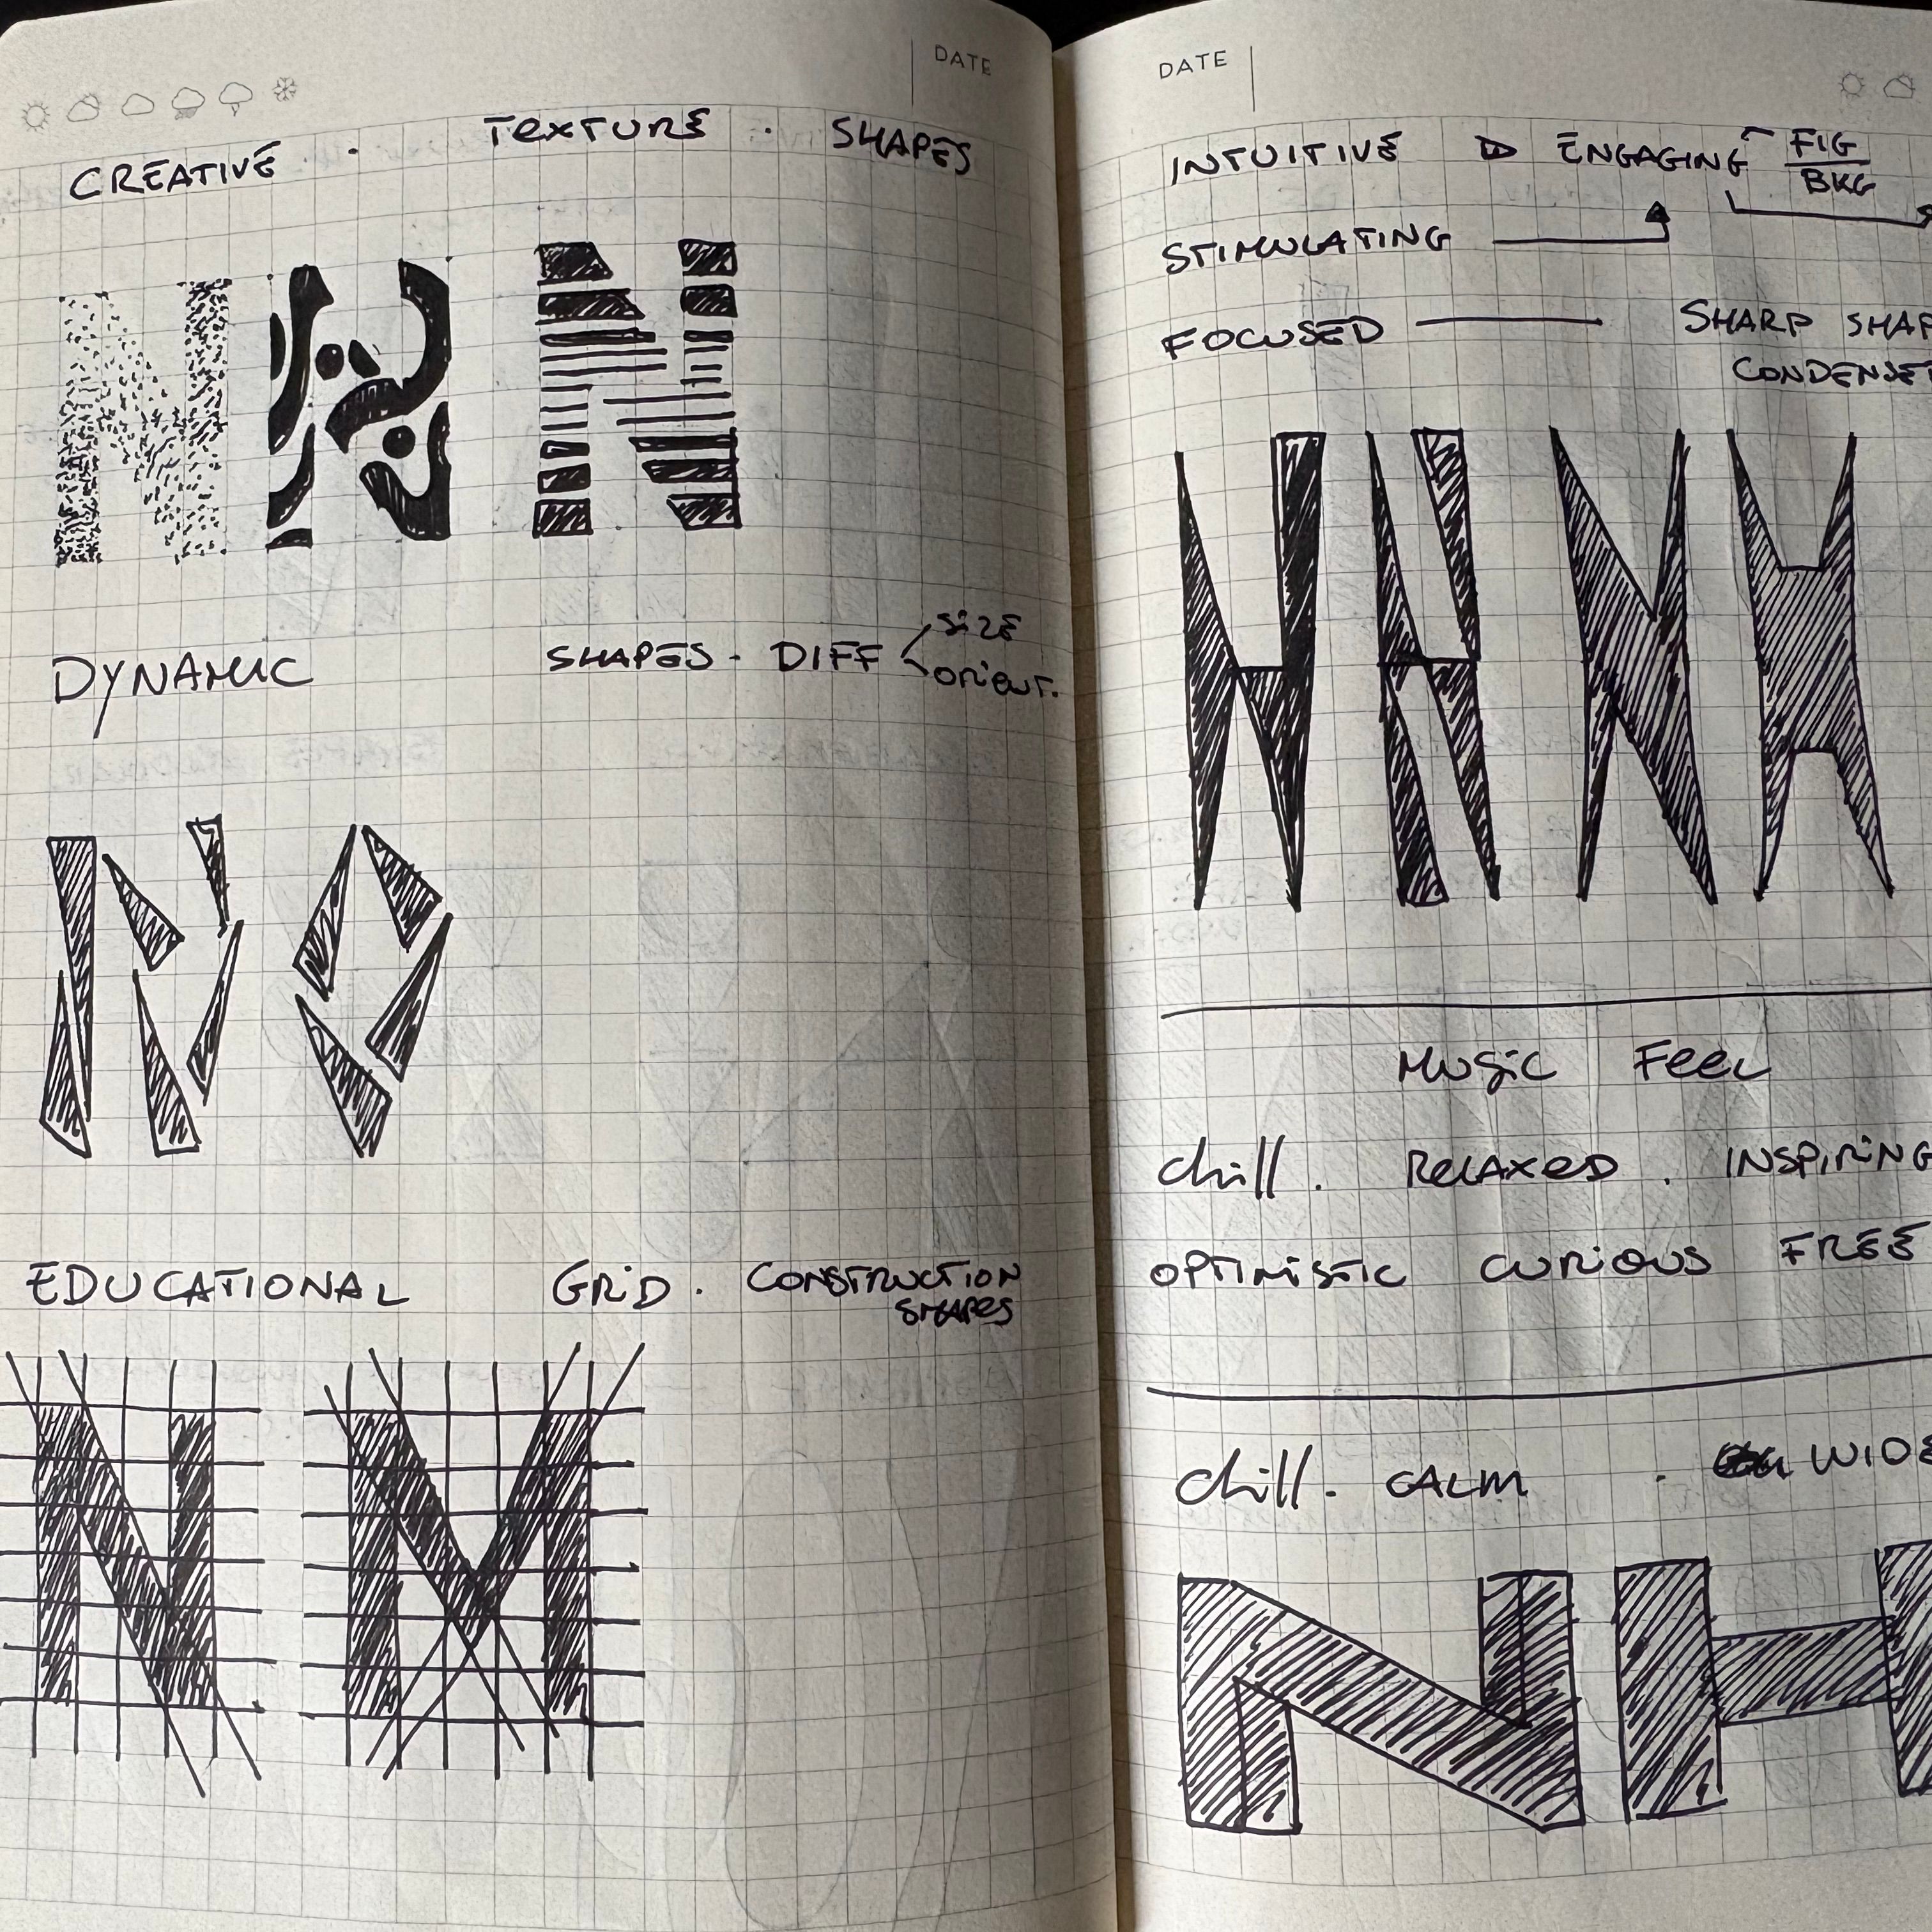 DATE
CREATIVE · TEXTURE · SHAPES
DYNAMIC SHAPES - DIFF SIZE
ORIENT.
EDUCATIONAL GRID · CONSTRUCTION
SHAPES
N M
DATE
INTUITIVE ENGAGING FIG
BKG
STIMULATING
FOCUSED SHARP
MUSIC FEEL
chill. RELAXED . INSPIRING
OPTIMISTIC CURIOUS FREE
chill. CALM . WIDE
N H